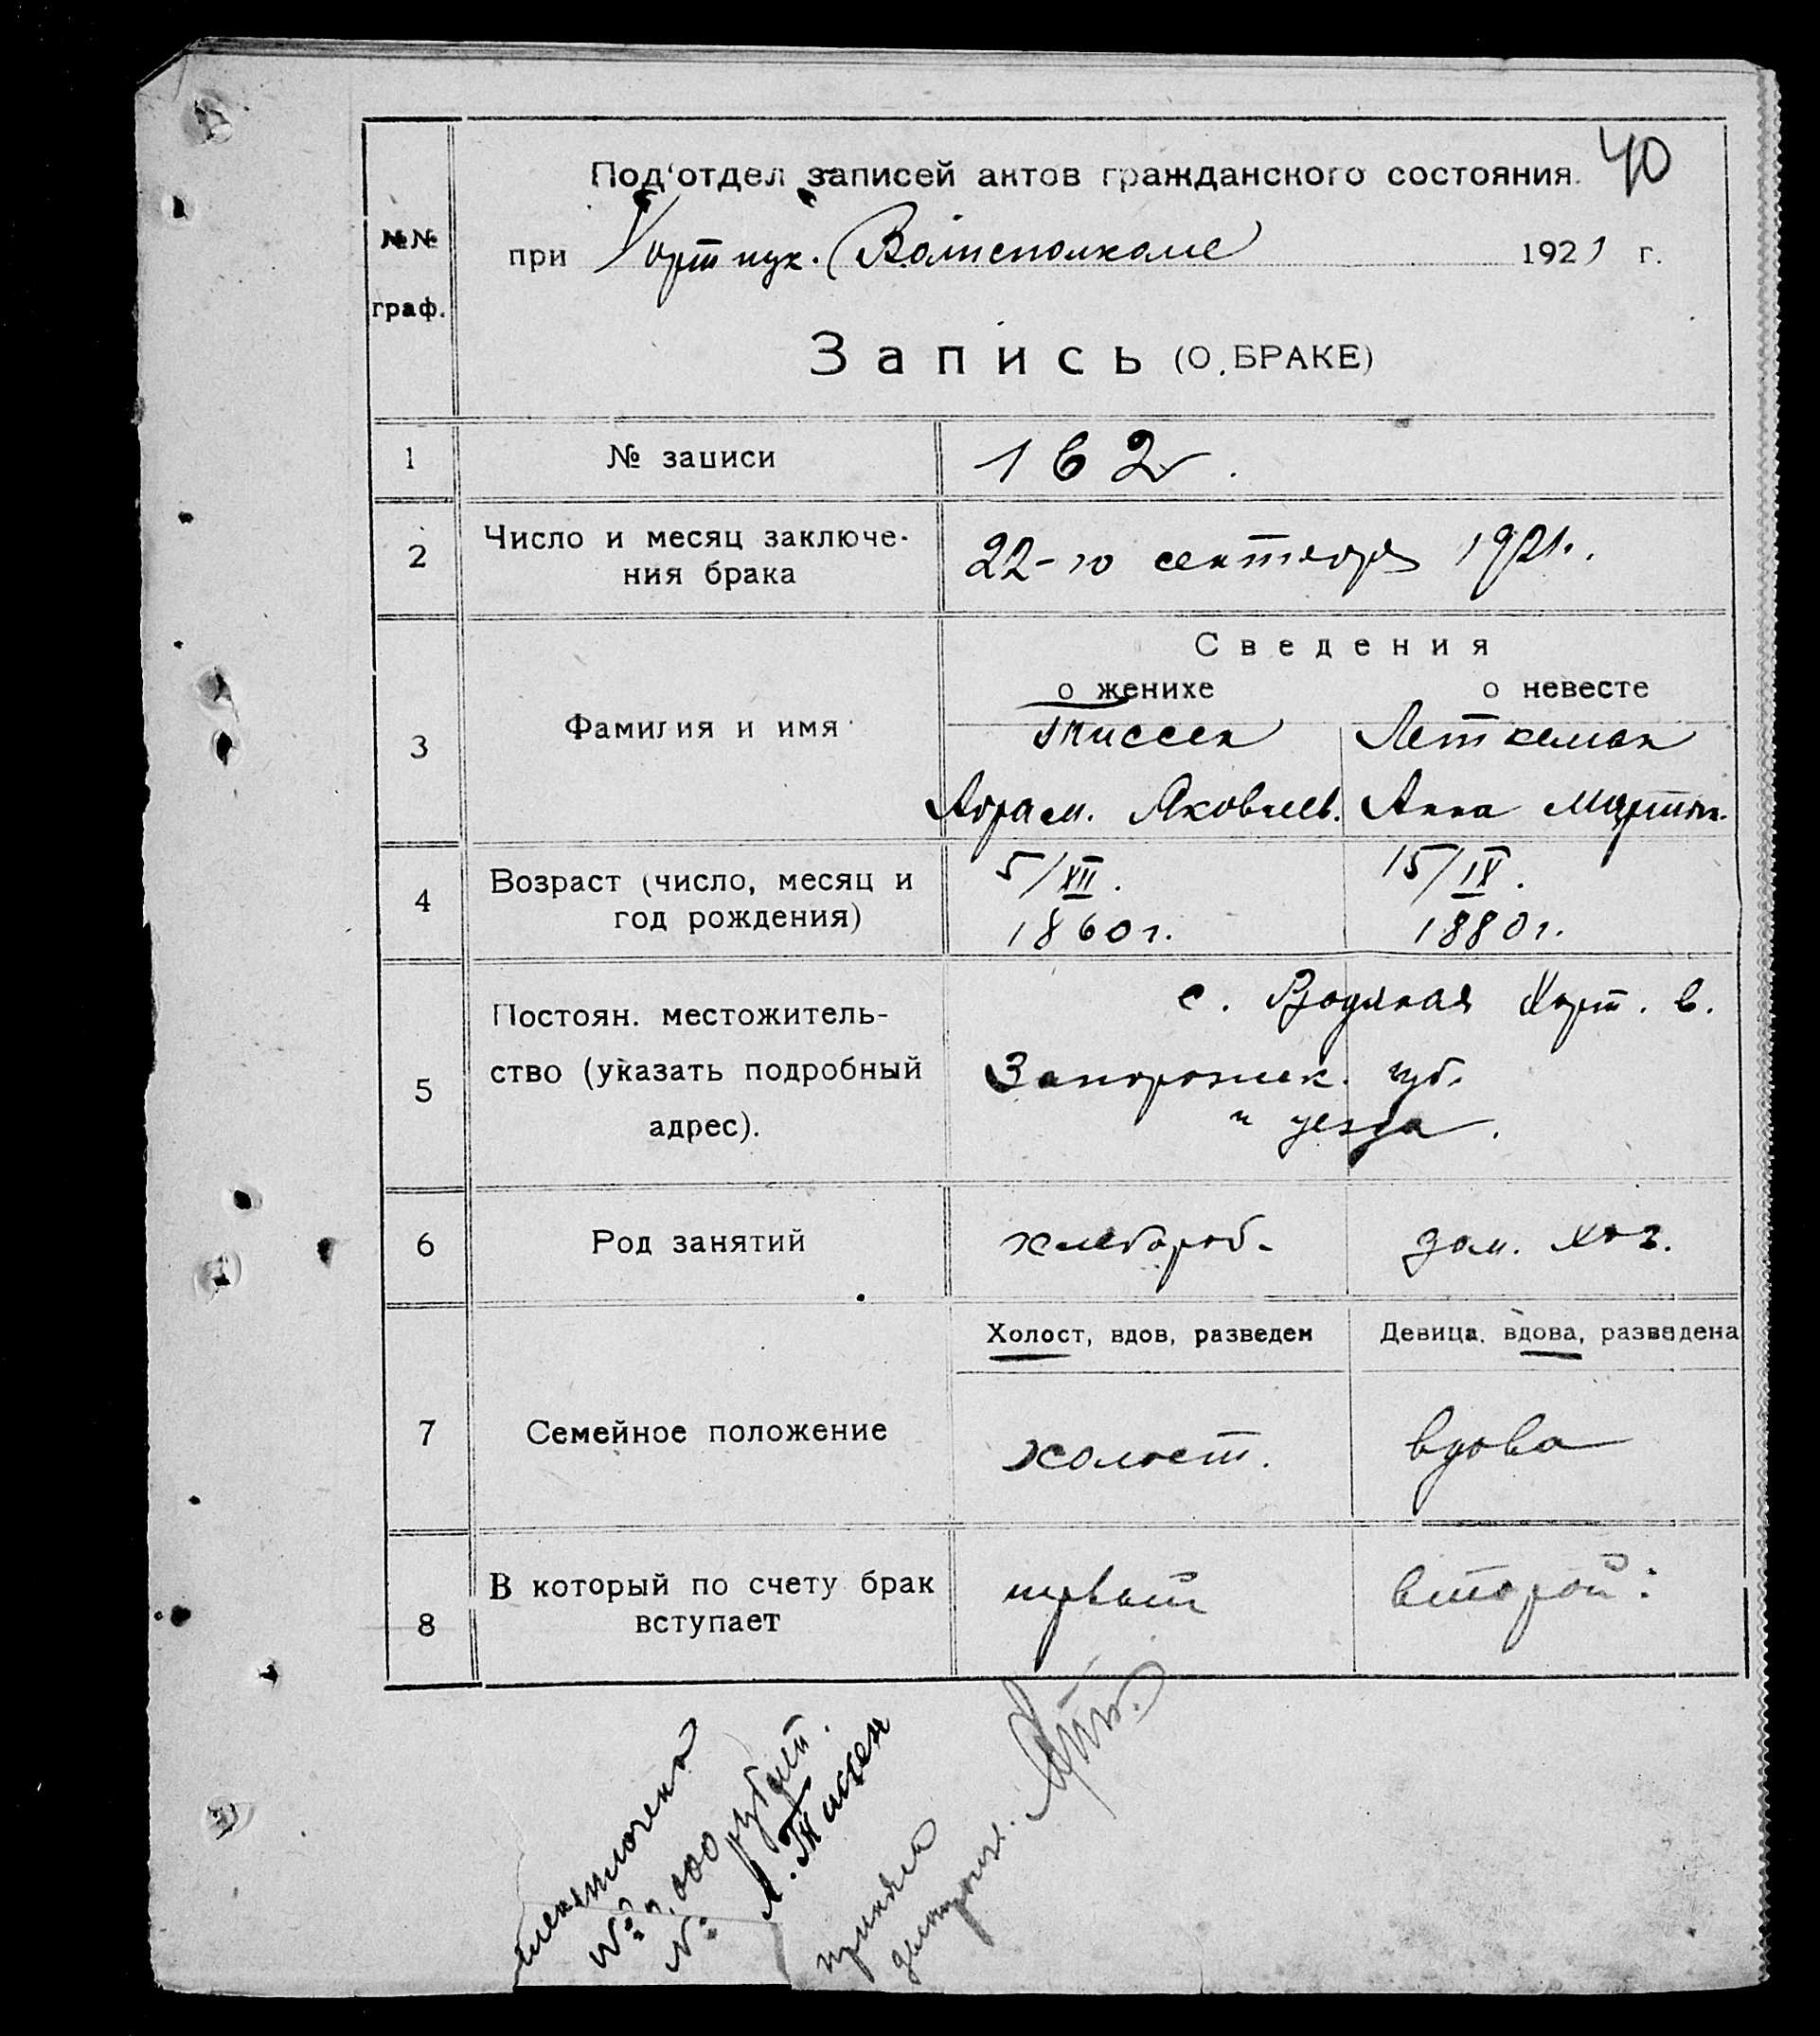 40
Под'отдел записей актов гражданского состояния.
№№
граф.
при Хортицк. Волисполкоме 1921 г.
Запись (О БРАКЕ)
1 № записи 162.
2 Число и месяц заключе-
ния брака 22-го сентября 1921.
Сведения
о женихе о невесте
3 Фамилия и имя Тиссен Леткеман
Абрам. Яковлев. Анна Мартын.
4 Возраст (число, месяц и
год рождения)
5/XII. 15/IX.
1860 г. 1880 г.
5 Постоян. местожитель-
ство (указать подробный
адрес).
с. Водяная Хорт. в.
Запорожск. губ.
и уезда.
6 Род занятий хлебороб. дом. хоз.
Холост, вдов, разведен Девица, вдова, разведена
7 Семейное положение холост. вдова
8 В который по счету брак
вступает
первый второй.
000 рублей.
А. Тиссен
приняла
делопроиз.